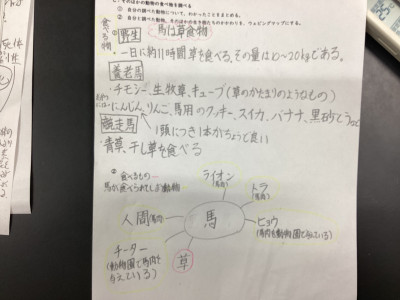 そのほかの動物の食べ物を調べる
① 自分で調べた動物について、わかったことをまとめる。
② 自分で調べた動物、そのほかの生き物たちのかかわりを、ウェビングマップにする。
食べる物
①
野生 馬は草食動物
・一日に約11時間草を食べる、その量は10〜20kgである。
養老馬
・チモシー、生牧草、キューブ(草のかたまりのようなもの)
にんじん、りんご、馬用のクッキー、スイカ、バナナ、黒砂とう
1頭につき1本がちょうど良い
競走馬
・青草、干し草を食べる
② 食べるもの
馬が食べられてしまう動物
ライオン
(馬肉)
トラ
(馬肉)
人間(馬肉)
馬
ヒョウ
(馬肉を動物園で与えている)
チーター
(動物園で馬肉を
与えている)
草